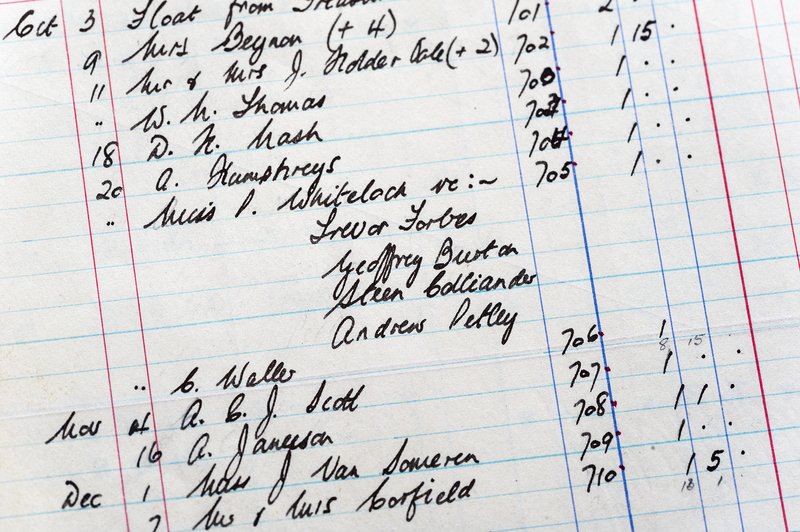 Oct 3 Float from 701 2
9 Mrs Beynon (+ 4) 702 1 15 .
11 Mr & Mrs J. Holder (+ 2) 703 1 . .
" W. N. Thomas 1 . .
18 D. K. Nash 704 1 . .
20 A. Humphreys 705 1 . .
" Miss P. Whitelock re:-
Trevor Forbes
Geoffrey Burton
Steen Colliander
Andrew Petley 706 1
8 15
" C. Waller 707 1 . .
Nov 4 A. C. J. Scott 708 1 1 .
16 A. Jameson 709 1 . .
Dec 1 J Van Someren 710 1 5 .
7 Mr & Mrs Corfield